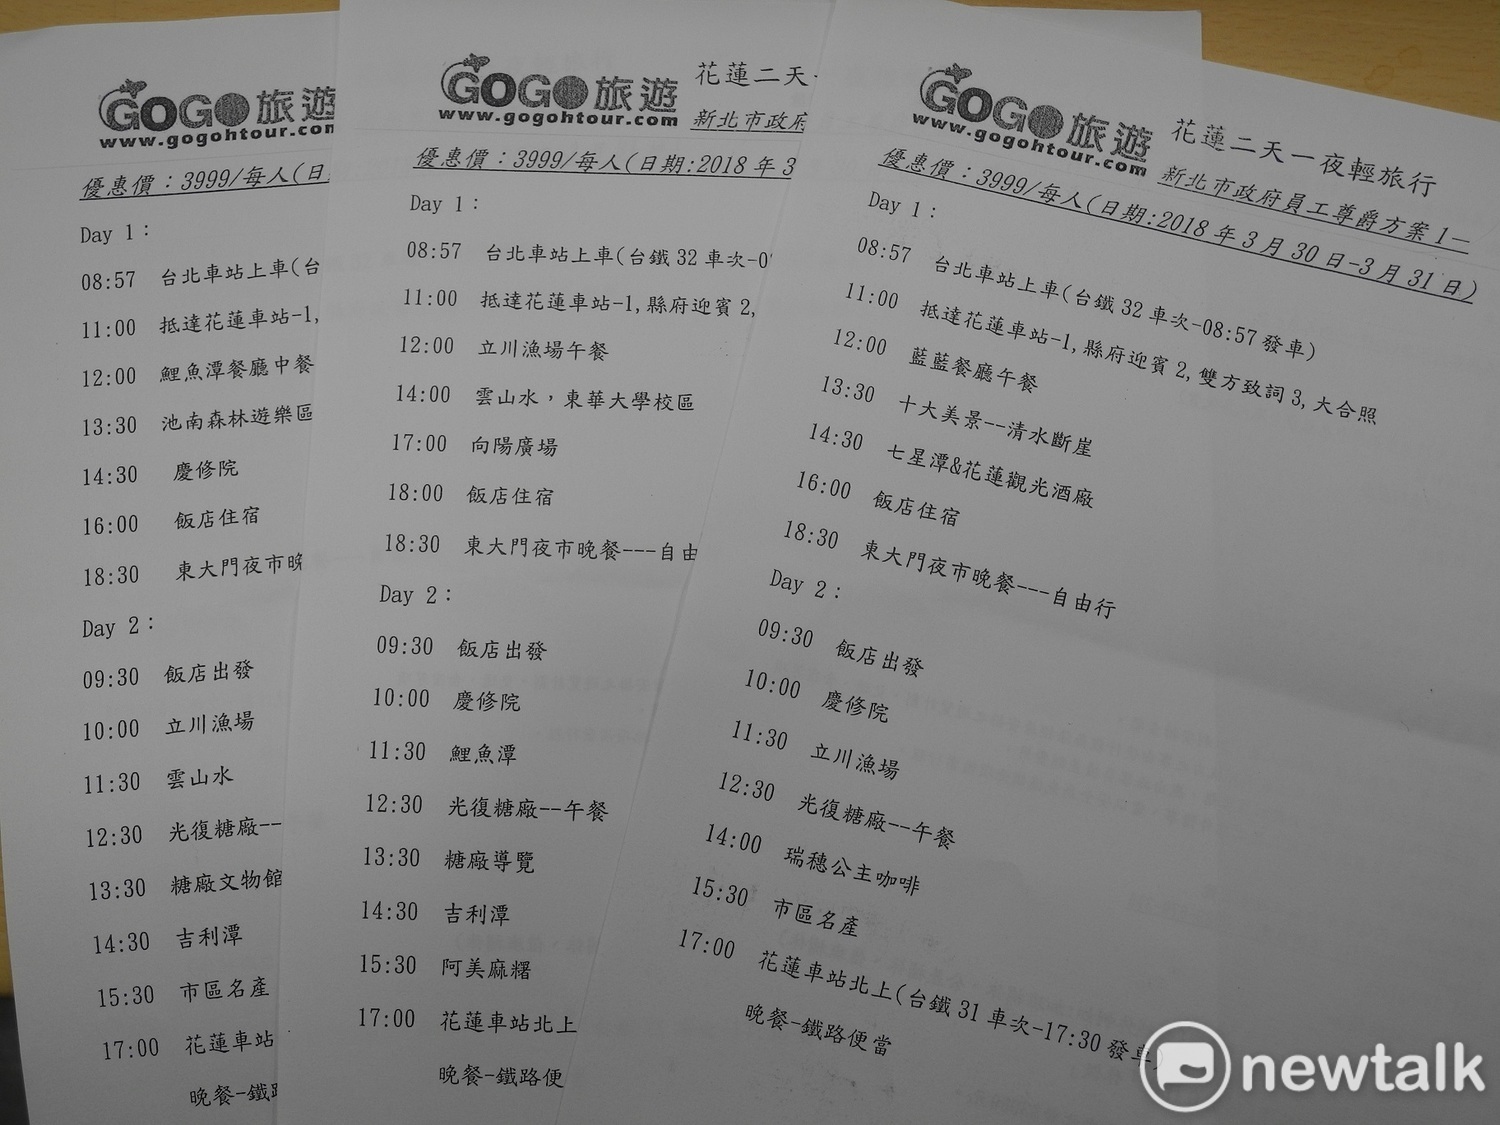 GOGO 旅遊
www.gogohtour.com
優惠價：3999/每人(日
Day 1：
08:57 台北車站上車(台
11:00 抵達花蓮車站-1,
12:00 鯉魚潭餐廳中餐
13:30 池南森林遊樂區
14:30 慶修院
16:00 飯店住宿
18:30 東大門夜市晚
Day 2：
09:30 飯店出發
10:00 立川漁場
11:30 雲山水
12:30 光復糖廠--
13:30 糖廠文物館
14:30 吉利潭
15:30 市區名產
17:00 花蓮車站
晚餐-鐵路
GOGO 旅遊 花蓮二天
www.gogohtour.com 新北市政府
優惠價：3999/每人(日期:2018 年 3
Day 1：
08:57 台北車站上車(台鐵 32 車次-0
11:00 抵達花蓮車站-1,縣府迎賓 2,
12:00 立川漁場午餐
14:00 雲山水，東華大學校區
17:00 向陽廣場
18:00 飯店住宿
18:30 東大門夜市晚餐---自由
Day 2：
09:30 飯店出發
10:00 慶修院
11:30 鯉魚潭
12:30 光復糖廠--午餐
13:30 糖廠導覽
14:30 吉利潭
15:30 阿美麻糬
17:00 花蓮車站北上
晚餐-鐵路便
GOGO 旅遊 花蓮二天一夜輕旅行
www.gogohtour.com 新北市政府員工尊爵方案 1—
優惠價：3999/每人(日期:2018 年 3 月 30 日-3 月 31 日)
Day 1：
08:57 台北車站上車(台鐵 32 車次-08:57 發車)
11:00 抵達花蓮車站-1,縣府迎賓 2,雙方致詞 3,大合照
12:00 藍藍餐廳午餐
13:30 十大美景--清水斷崖
14:30 七星潭&花蓮觀光酒廠
16:00 飯店住宿
18:30 東大門夜市晚餐---自由行
Day 2：
09:30 飯店出發
10:00 慶修院
11:30 立川漁場
12:30 光復糖廠--午餐
14:00 瑞穗公主咖啡
15:30 市區名產
17:00 花蓮車站北上(台鐵 31 車次-17:30 發車)
晚餐-鐵路便當
newtalk